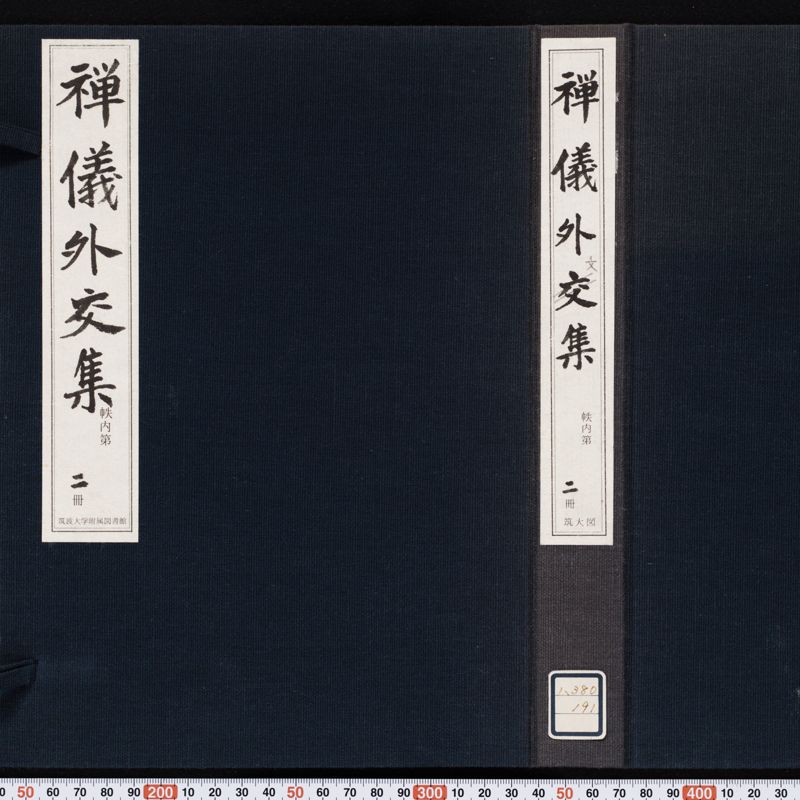 禅儀外交集
帙内第
二冊
筑波大学附属図書館
禅儀外交集
文
帙内第
二冊
筑大図
1,380
191
50 60 70 80 90 200 10 20 30 40 50 60 70 80 90 300 10 20 30 40 50 60 70 80 90 400 10 20 30